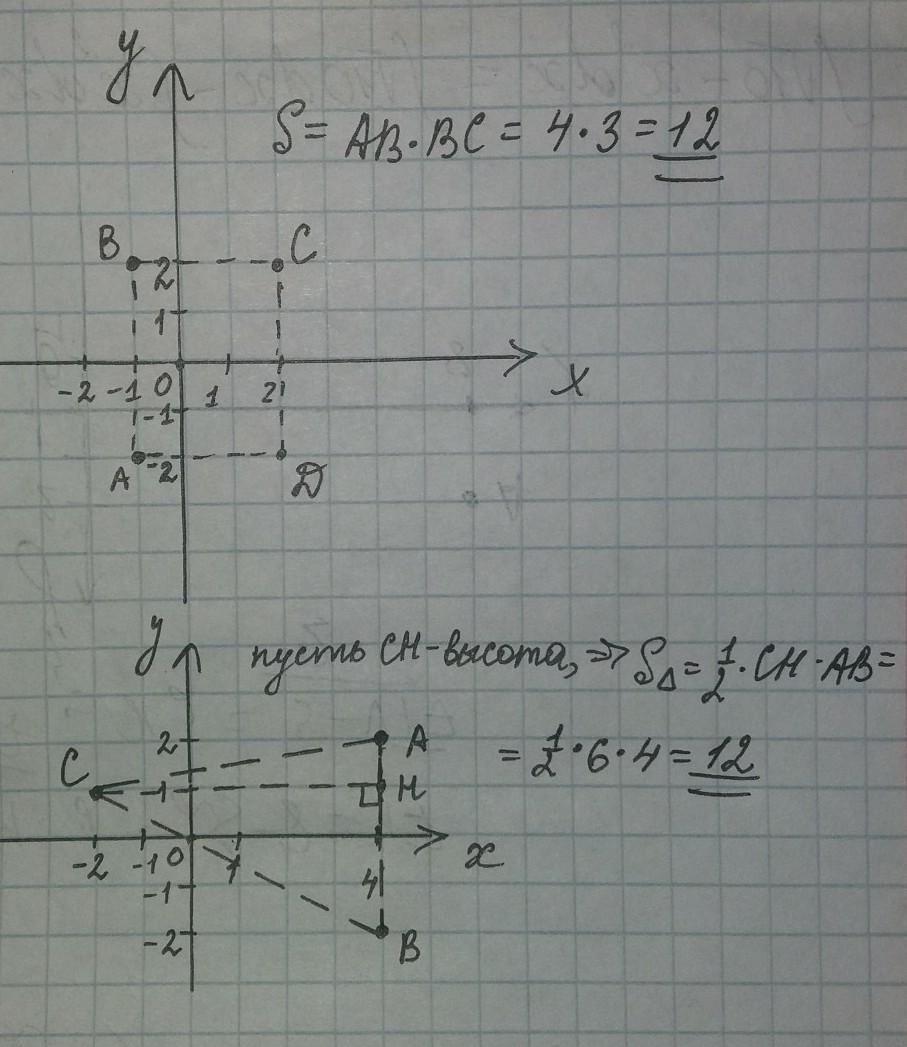 y
S = AB · BC = 4 · 3 = 12
B 2 C
1
-2 -1 0 1 2 x
-1
A -2 D
y пусть CH - высота, => S△ = 1/2 · CH · AB =
2 A = 1/2 · 6 · 4 = 12
C 1 H
-2 -1 0 1 4 x
-1
-2 B